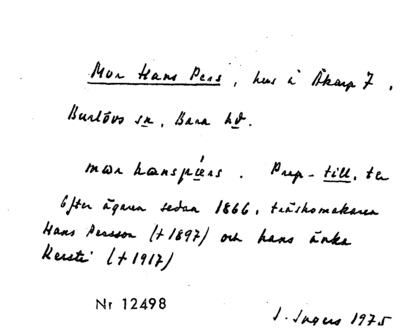 Mor Hans Pers, hus i Åkarp 7,
Burlövs sn, Bara hd.
mor hanspæ̱rs. Prep. till, te
Efter ägaren sedan 1866, träskomakaren
Hans Persson (†1897) och hans änka
Kersti (†1917)
Nr 12498
I. Ingers 1975